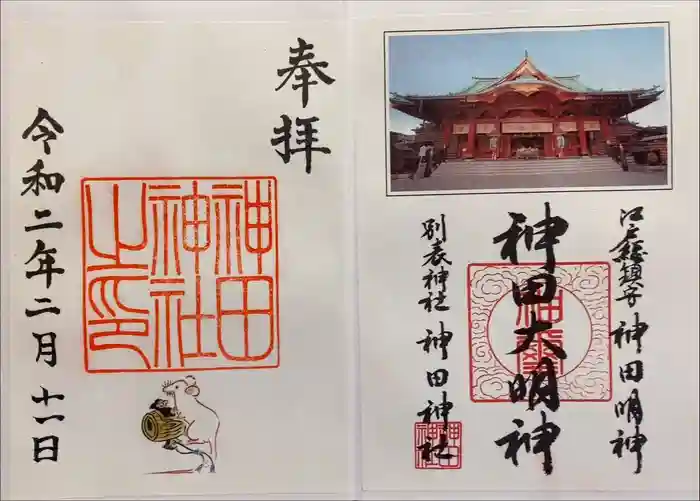 奉拝
神田
神社
之印
令和二年二月十一日
江戸総鎮守 神田明神
神田大明神
別表神社 神田神社